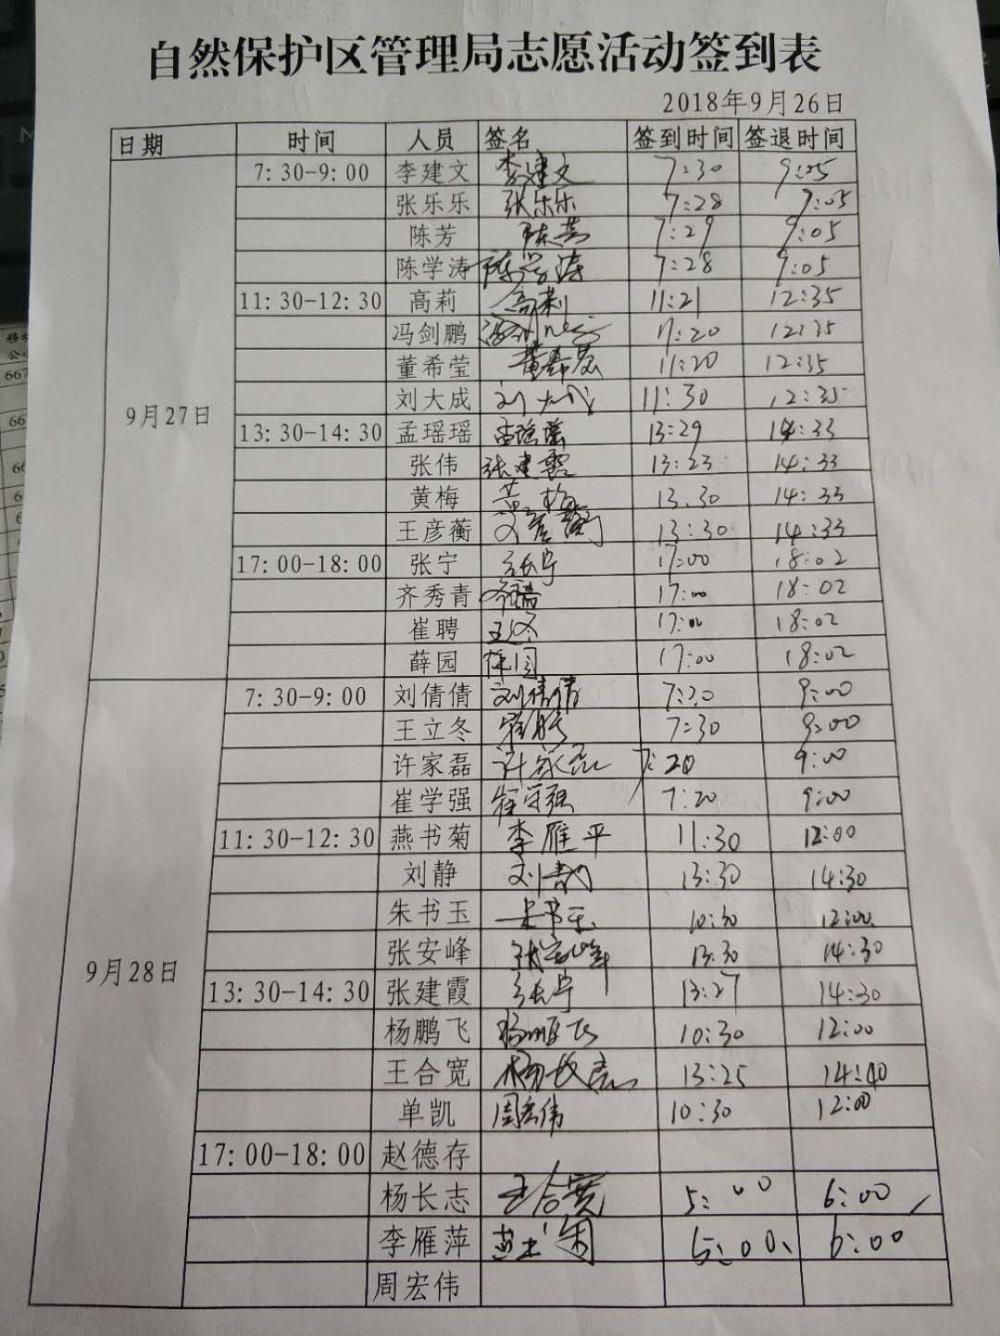 自然保护区管理局志愿活动签到表
2018年9月26日
日期 时间 人员 签名 签到时间 签退时间
7:30-9:00 李建文 李建文 7:30 9:05
张乐乐 张乐乐 7:28 9:05
陈芳 陈芳 7:29 9:05
陈学涛 陈学涛 7:28 9:05
11:30-12:30 高莉 高莉 11:21 12:35
冯剑鹏 11:20 12:35
董希莹 董希莹 11:20 12:35
刘大成 刘大成 11:30 12:35
9月27日
13:30-14:30 孟瑶瑶 孟瑶瑶 13:29 14:33
张伟 张建霞 13:23 14:33
黄梅 黄梅 13.30 14:33
王彦蘅 王彦蘅 13:30 14:33
17:00-18:00 张宁 张宁 17:00 18:02
齐秀青 17:00 18:02
崔聘 王立冬 17:00 18:02
薛园 薛园 17:00 18:02
7:30-9:00 刘倩倩 刘倩倩 7:20 9:00
王立冬 崔聘 7:30 9:00
许家磊 许家磊 7:20 9:00
崔学强 崔学强 7:20 9:00
11:30-12:30 燕书菊 李雁平 11:30 12:00
刘静 刘静 13:30 14:30
朱书玉 朱书玉 10:30 12:00
张安峰 张安峰 13:30 14:30
9月28日
13:30-14:30 张建霞 张宁 13:27 14:30
杨鹏飞 杨鹏飞 10:30 12:00
王合宽 杨长志 13:25 14:40
单凯 周宏伟 10:30 12:00
17:00-18:00 赵德存
杨长志 王合宽 5:00 6:00
李雁萍 5:00 6:00
周宏伟